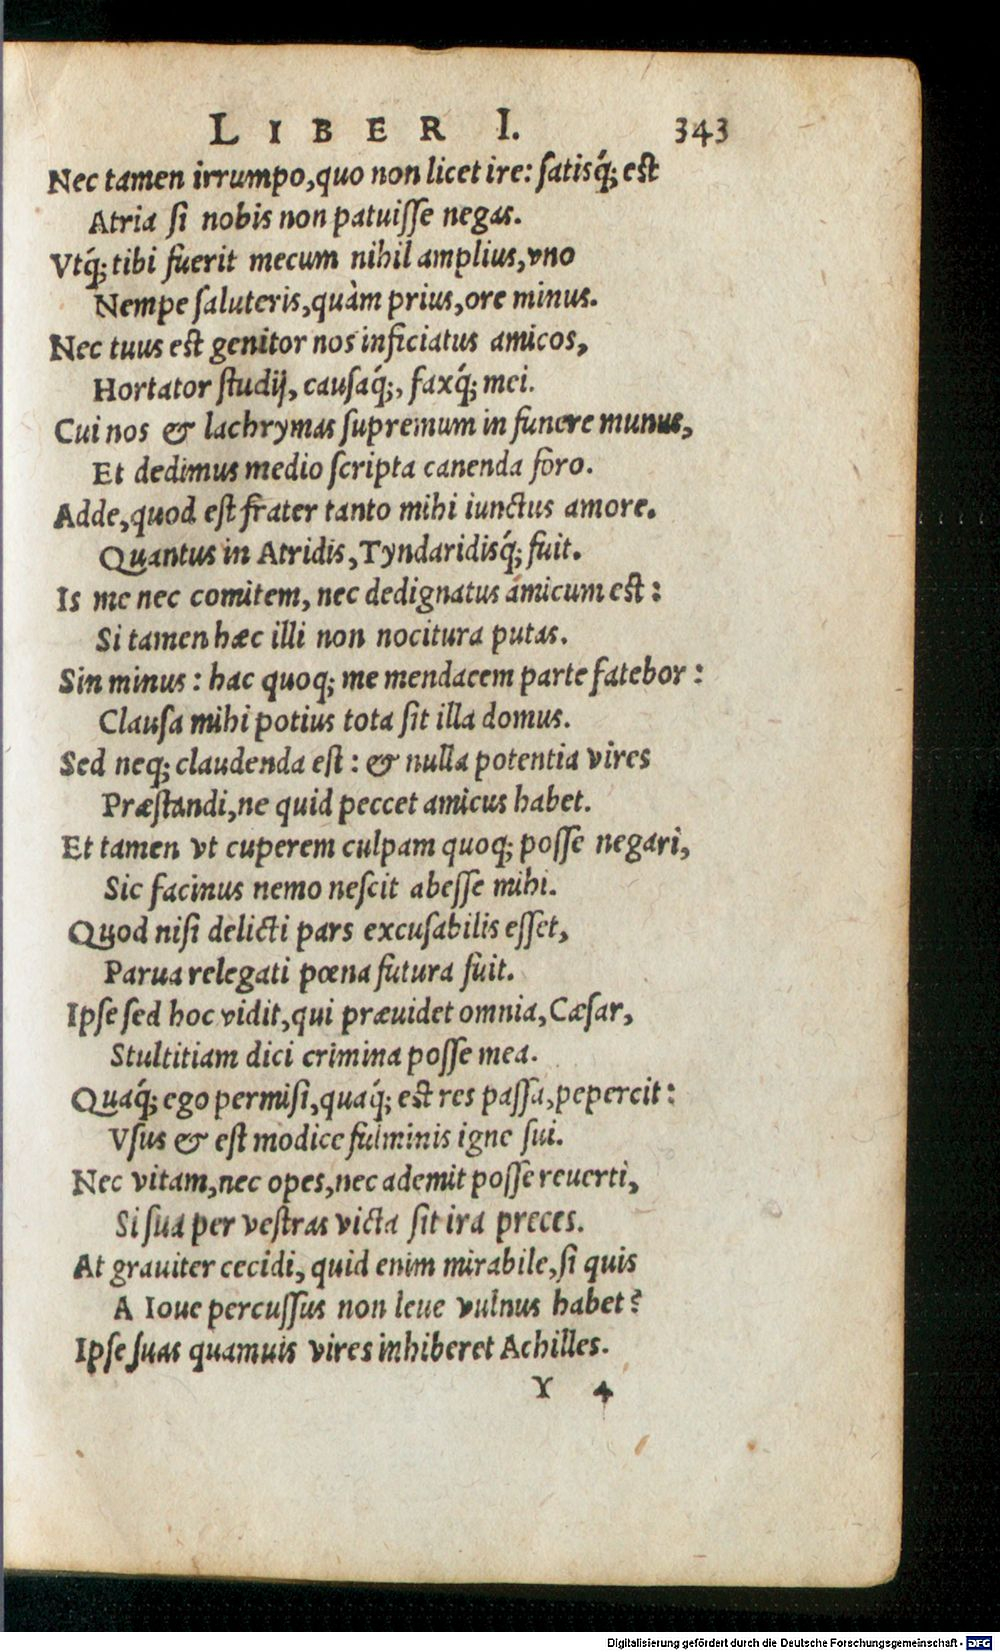 LIBER I. 343
Nec tamen irrumpo, quo non licet ire: ſatisq́; eſt
Atria ſi nobis non patuiſſe negas.
Vtq́; tibi fuerit mecum nihil amplius, vno
Nempe ſaluteris, quàm prius, ore minus.
Nec tuus eſt genitor nos inficiatus amicos,
Hortator ſtudij, cauſaq́;, faxq́; mei.
Cui nos & lachrymas ſupremum in funere munus,
Et dedimus medio ſcripta canenda foro.
Adde, quod eſt frater tanto mihi iunctus amore.
Quantus in Atridis, Tyndaridisq́; fuit.
Is me nec comitem, nec dedignatus amicum eſt:
Si tamen hæc illi non nocitura putas.
Sin minus: hac quoq; me mendacem parte fatebor:
Clauſa mihi potius tota ſit illa domus.
Sed neq; claudenda eſt: & nulla potentia vires
Præſtandi, ne quid peccet amicus habet.
Et tamen vt cuperem culpam quoq; poſſe negari,
Sic facinus nemo neſcit abeſſe mihi.
Quod niſi delicti pars excuſabilis eſſet,
Parua relegati pœna futura fuit.
Ipſe ſed hoc vidit, qui præuidet omnia, Cæſar,
Stultitiam dici crimina poſſe mea.
Quaq́; ego permiſi, quaq́; eſt res paſſa, pepercit:
Vſus & eſt modice fulminis igne ſui.
Nec vitam, nec opes, nec ademit poſſe reuerti,
Si ſua per veſtras victa ſit ira preces.
At grauiter cecidi, quid enim mirabile, ſi quis
A Ioue percuſſus non leue vulnus habet?
Ipſe ſuas quamuis vires inhiberet Achilles.
Y 4
Digitalisierung gefördert durch die Deutsche Forschungsgemeinschaft - DFG